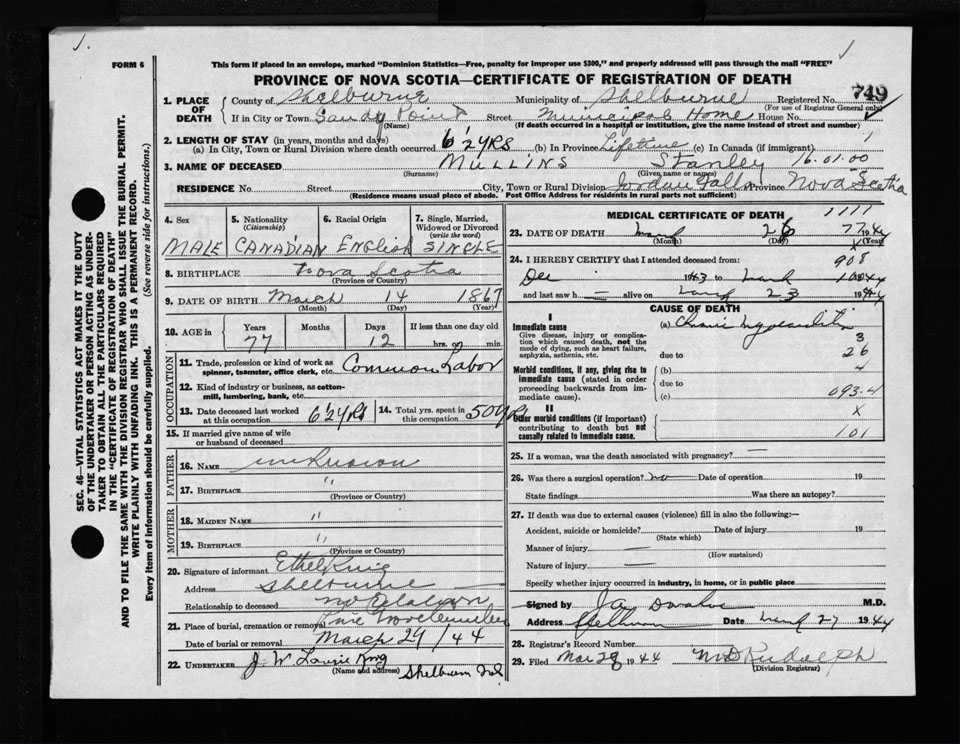 1.
FORM 6
This form if placed in an envelope, marked "Dominion Statistics—Free, penalty for improper use $300," and properly addressed will pass through the mail "FREE"
PROVINCE OF NOVA SCOTIA—CERTIFICATE OF REGISTRATION OF DEATH
749
1. PLACE OF DEATH
County of Shelburne Municipality of Shelburne Registered No.
(For use of Registrar General only)
If in City or Town Sandy Point Street Municipal Home House No.
(Name) (If death occurred in a hospital or institution, give the name instead of street and number)
2. LENGTH OF STAY (in years, months and days)
(a) In City, Town or Rural Division where death occurred 6 1/2 YRS (b) In Province Lifetime (c) In Canada (if immigrant)
3. NAME OF DECEASED MULLINS Stanley 16.01.00
(Surname) (Given name or names)
RESIDENCE No. Street City, Town or Rural Division Jordan Falls Province Nova Scotia
(Residence means usual place of abode. Post Office Address for residents in rural parts not sufficient)
4. Sex
MALE
5. Nationality
(Citizenship)
CANADIAN
6. Racial Origin
English
7. Single, Married, Widowed or Divorced
(write the word)
SINGLE
8. BIRTHPLACE Nova Scotia
(Province or Country)
9. DATE OF BIRTH March 14 1867
(Month) (Day) (Year)
10. AGE in
Years Months Days If less than one day old
77 12 hrs. or min.
OCCUPATION
11. Trade, profession or kind of work as spinner, teamster, office clerk, etc. Common Labor
12. Kind of industry or business, as cotton-mill, lumbering, bank, etc.
13. Date deceased last worked at this occupation 6 1/2 yrs
14. Total yrs. spent in this occupation 50 yrs
15. If married give name of wife or husband of deceased
FATHER
16. NAME unknown
17. BIRTHPLACE "
(Province or Country)
MOTHER
18. MAIDEN NAME "
19. BIRTHPLACE "
(Province or Country)
20. Signature of informant Ethel King
Address Shelburne
Relationship to deceased no Relation
21. Place of burial, cremation or removal
Date of burial or removal March 29/44
22. UNDERTAKER J W Laurie King
(Name and address) Shelburn
MEDICAL CERTIFICATE OF DEATH
1111
23. DATE OF DEATH March 26 1944
77
(Month) (Day) (Year)
x
24. I HEREBY CERTIFY that I attended deceased from:
908
Dec 1943 to March 1944
and last saw h — alive on March 23 1944
CAUSE OF DEATH
I
Immediate cause
Give disease, injury or complication which caused death, not the mode of dying, such as heart failure, asphyxia, asthenia, etc.
(a) Chronic myocarditis
3
due to
26
Morbid conditions, if any, giving rise to immediate cause (stated in order proceeding backwards from immediate cause).
(b)
4
due to
(c)
093.4
II
Other morbid conditions (if important) contributing to death but not causally related to immediate cause.
x
101
25. If a woman, was the death associated with pregnancy? —
26. Was there a surgical operation? no Date of operation 19
State findings Was there an autopsy?
27. If death was due to external causes (violence) fill in also the following:—
Accident, suicide or homicide? Date of injury 19
(State which)
Manner of injury —
(How sustained)
Nature of injury —
Specify whether injury occurred in industry, in home, or in public place
Signed by M.D.
Address Shelburne Date March 27 1944
28. Registrar's Record Number
29. Filed Mar 28 1944 Rudolph
(Division Registrar)
SEC. 46—VITAL STATISTICS ACT MAKES IT THE DUTY
OF THE UNDERTAKER OR PERSON ACTING AS UNDER-
TAKER TO OBTAIN ALL THE PARTICULARS REQUIRED
IN THE "CERTIFICATE OF REGISTRATION OF DEATH"
AND TO FILE THE SAME WITH THE DIVISION REGISTRAR WHO SHALL ISSUE THE BURIAL PERMIT.
WRITE PLAINLY WITH UNFADING INK. THIS IS A PERMANENT RECORD.
Every item of information should be carefully supplied. (See reverse side for instructions.)